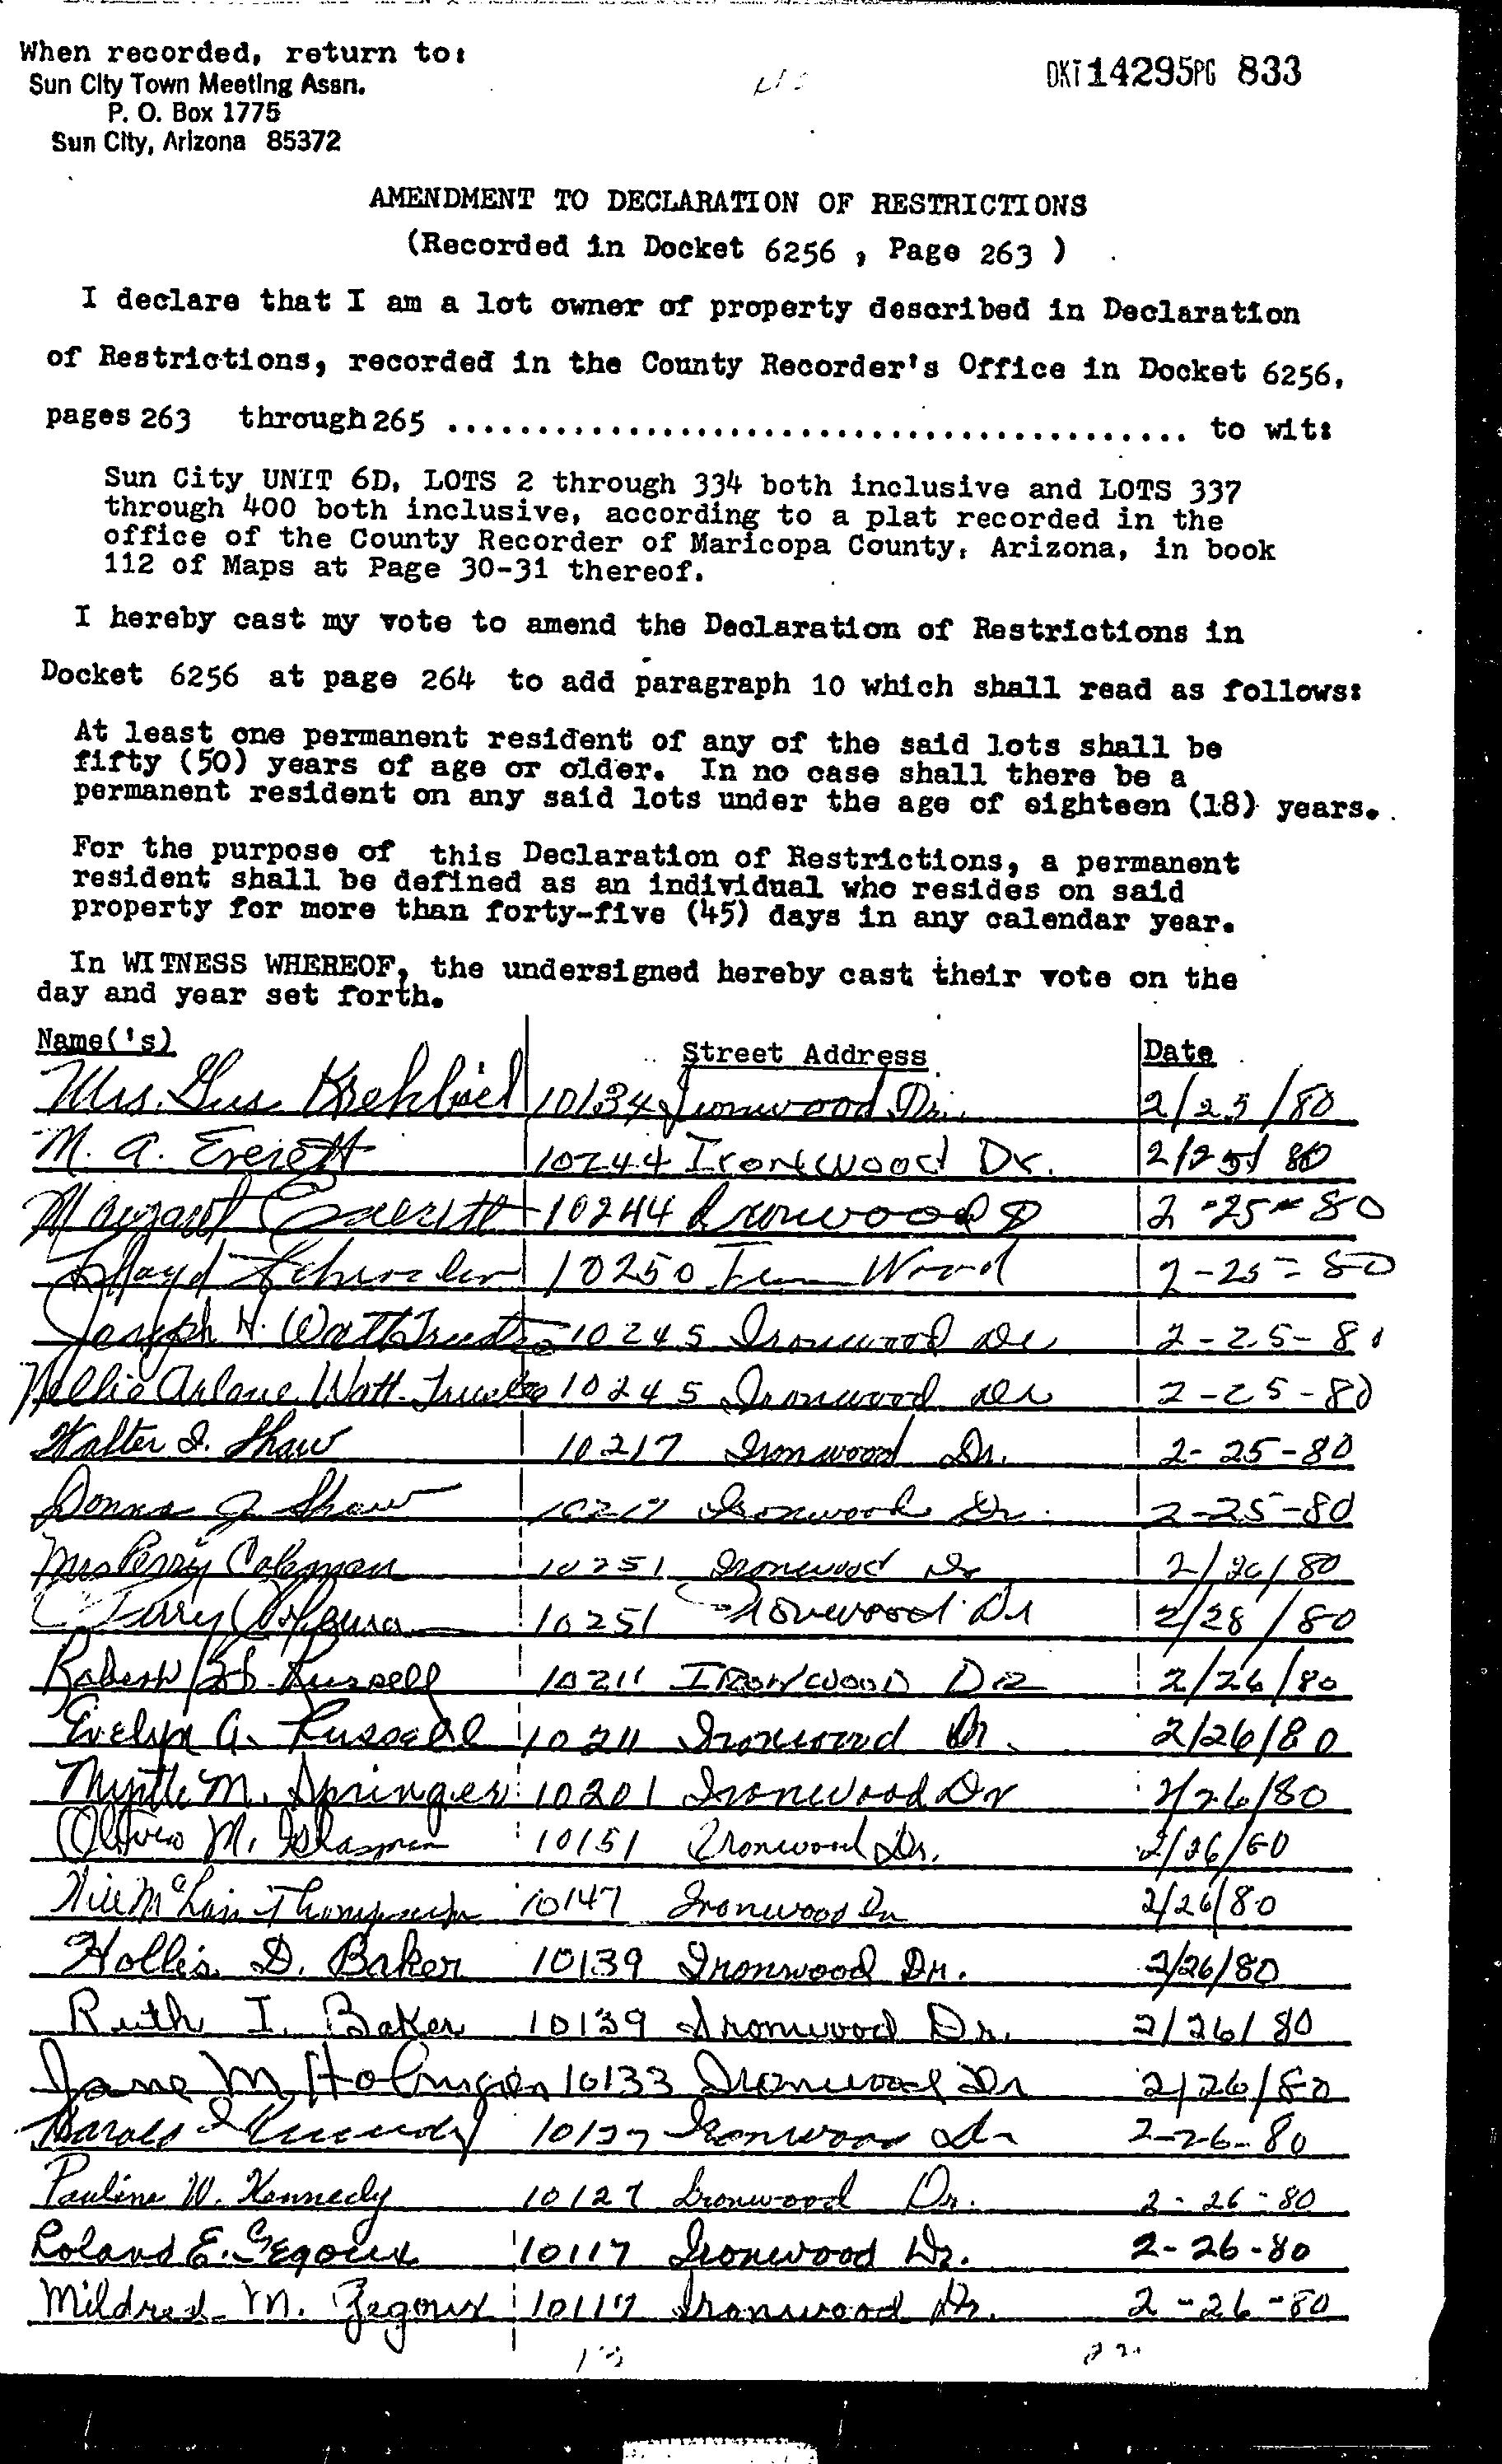 When recorded, return to:
DKT 14295PG 833
Sun City Town Meeting Assn.
P. O. Box 1775
Sun City, Arizona 85372
AMENDMENT TO DECLARATION OF RESTRICTIONS
(Recorded in Docket 6256 , Page 263 )
I declare that I am a lot owner of property described in Declaration
of Restrictions, recorded in the County Recorder's Office in Docket 6256,
pages 263 through 265 ......................................... to wit:
Sun City UNIT 6D, LOTS 2 through 334 both inclusive and LOTS 337
through 400 both inclusive, according to a plat recorded in the
office of the County Recorder of Maricopa County, Arizona, in book
112 of Maps at Page 30-31 thereof.
I hereby cast my vote to amend the Declaration of Restrictions in
Docket 6256 at page 264 to add paragraph 10 which shall read as follows:
At least one permanent resident of any of the said lots shall be
fifty (50) years of age or older. In no case shall there be a
permanent resident on any said lots under the age of eighteen (18) years.
For the purpose of this Declaration of Restrictions, a permanent
resident shall be defined as an individual who resides on said
property for more than forty-five (45) days in any calendar year.
In WITNESS WHEREOF, the undersigned hereby cast their vote on the
day and year set forth.
Name('s) Street Address Date
Mrs. Gus Krehbiel 10134 Ironwood Dr. 2/25/80
M. A. Everett 10244 Ironwood Dr. 2/25/80
Margaret Everitt 10244 Ironwood D 2-25-80
Lloyd 10250 Wood 2-25-80
Joseph H. Watt Trustee 10245 Ironwood Dr 2-25-80
Nellie Arlane Watt-Trustee 10245 Ironwood Dr 2-25-80
Walter I. Shaw 10217 Ironwood Dr. 2-25-80
Donna J. Shaw 10217 Ironwood Dr. 2-25-80
Mrs Perry Coleman 10251 Ironwood Dr 2/26/80
Perry 10251 Ironwood Dr 2/28/80
Robert Russell 10211 IRONWOOD DR 2/26/80
Evelyn A. Russell 10211 Ironwood Dr. 2/26/80
Myrtle M. Springer 10201 Ironwood Dr 2/26/80
M. 10151 Ironwood Dr. 2/26/80
Thompson 10147 Ironwood Dr 2/26/80
Hollis D. Baker 10139 Ironwood Dr. 2/26/80
Ruth I. Baker 10139 Ironwood Dr. 2/26/80
Jane M Holmgren 10133 Ironwood Dr 2/26/80
Harold Kennedy 10127 Ironwood Dr 2-26-80
Pauline W. Kennedy 10127 Ironwood Dr. 2-26-80
Roland E. Gegoux 10117 Ironwood Dr. 2-26-80
Mildred M. Gegoux 10117 Ironwood Dr. 2-26-80